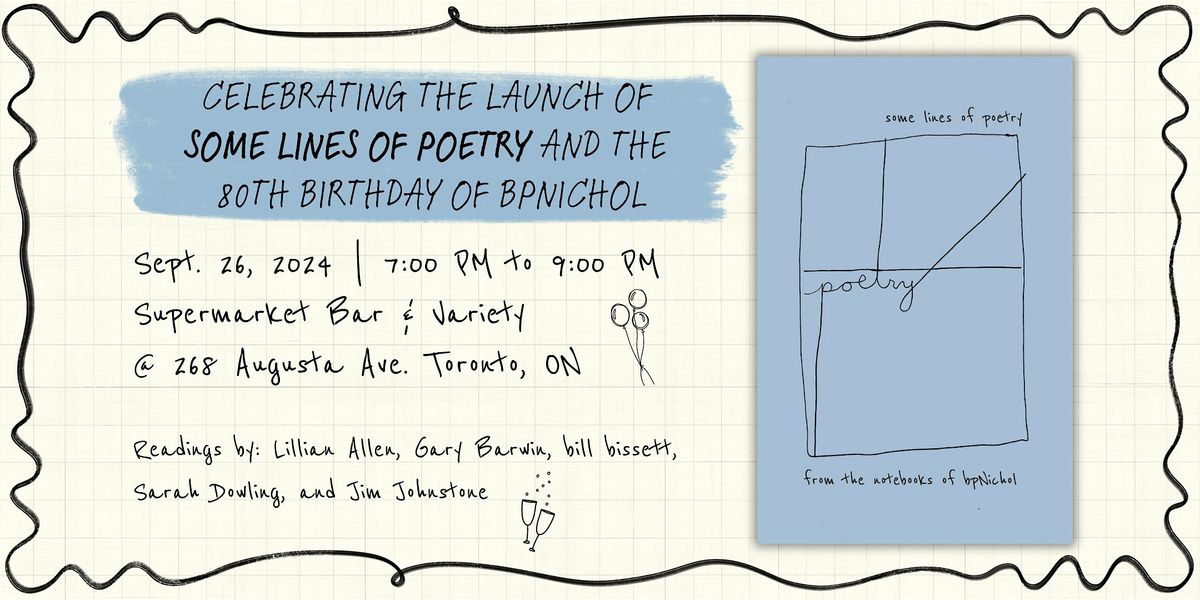 CELEBRATING THE LAUNCH OF
SOME LINES OF POETRY AND THE
80TH BIRTHDAY OF BPNICHOL
Sept. 26, 2024 | 7:00 PM to 9:00 PM
Supermarket Bar & Variety
@ 268 Augusta Ave. Toronto, ON
Readings by: Lillian Allen, Gary Barwin, bill bissett,
Sarah Dowling, and Jim Johnstone
some lines of poetry
poetry
from the notebooks of bpNichol